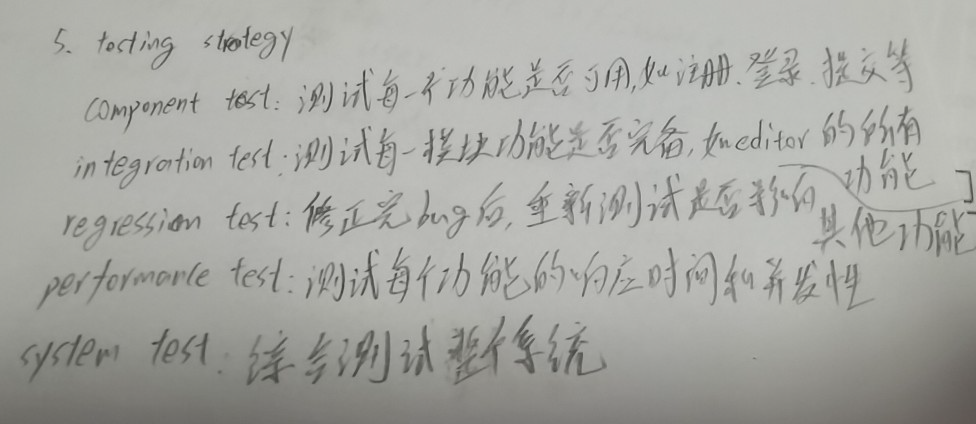 5. testing strategy
component test: 测试每一个功能是否可用,如注册、登录、提交等
integration test: 测试每一模块功能是否完备,如editor的所有功能
regression test: 修正完bug后,重新测试是否影响其他功能
performance test: 测试每个功能的响应时间和并发性
system test: 综合测试整个系统